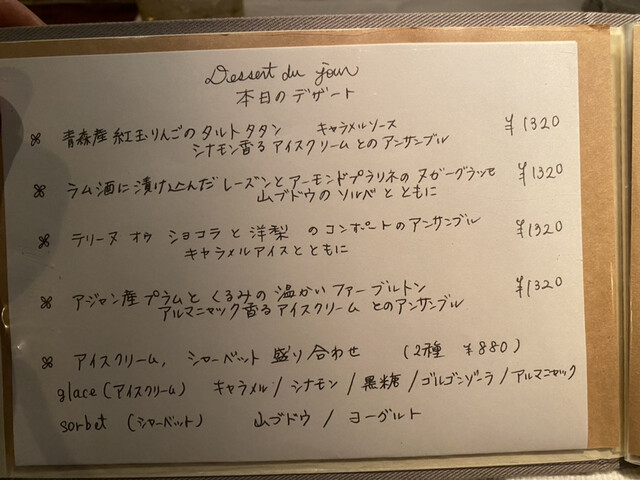 Dessert du jour
本日のデザート
⌘ 青森産紅玉りんごのタルトタタン キャラメルソース ¥1320
シナモン香るアイスクリームとのアンサンブル
⌘ ラム酒に漬け込んだレーズンとアーモンドプラリネのヌガーグラッセ ¥1320
山ブドウのソルベとともに
⌘ テリーヌ オゥ ショコラと洋梨のコンポートのアンサンブル ¥1320
キャラメルアイスとともに
⌘ アジャン産プラムとくるみの温かいファーブルトン ¥1320
アルマニャック香るアイスクリームとのアンサンブル
⌘ アイスクリーム, シャーベット盛り合わせ (2種 ¥880)
glace (アイスクリーム) キャラメル / シナモン / 黒糖 / ゴルゴンゾーラ / アルマニャック
sorbet (シャーベット) 山ブドウ / ヨーグルト